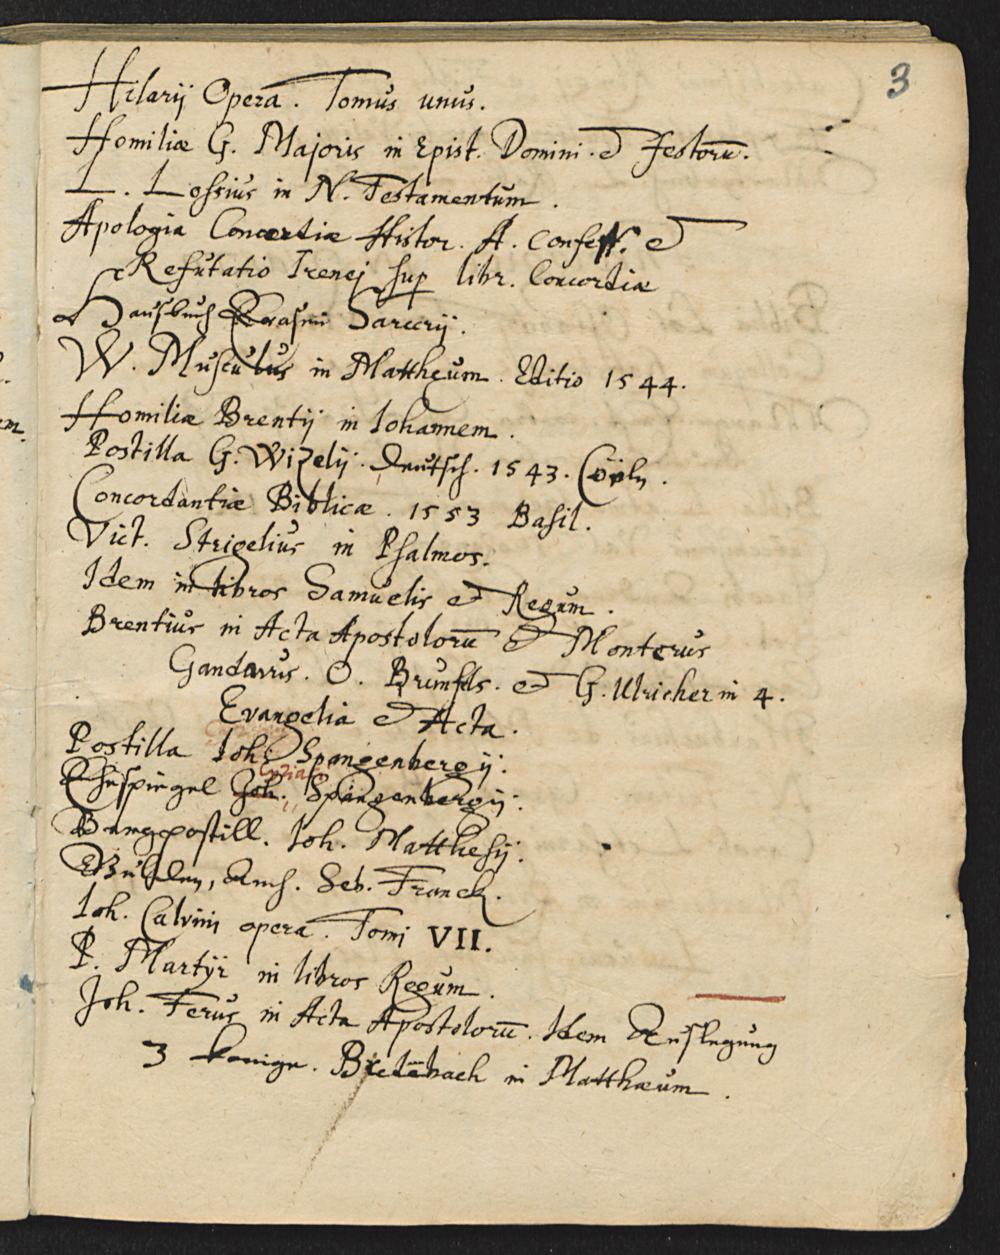 3
Hilarij Opera. Tomus unus.
Homiliæ G. Majoris in Epist. Domini. et festorū.
L. Lossius in N. Testamentum.
Apologia Concordiæ Histor. A. Confess. et
Refutatio Irenej sup libr. Concordiæ
Hausbuch Erasmi Sarcerij.
W. Musculus in Mattheum. Editio 1544.
Homiliæ Brentij in Iohannem.
Postilla G. Wizelij. deutsch. 1543. Cöln.
Concordantiæ Biblicæ. 1553 Basil.
Vict. Strigelius in Psalmos.
Idem in libros Samuelis et Regum.
Brentius in Acta Apostolorū et Monterus
Gandavus. O. Brunfels. et G. Ulricher in 4.
Evangelia et Acta.
Postilla Ioh. Spangenbergij.
Cyriaci
Ehespiegel Joh. Spangenbergij.
Bergpostill. Ioh. Matthesij.
Seb. Franck.
Ioh. Calvini opera. Tomi VII.
P. Martÿr in libros Regum.
Joh. Ferus in Acta Apostolorū. Idem Auslegung
3 konige. Bredenbach in Matthæum.